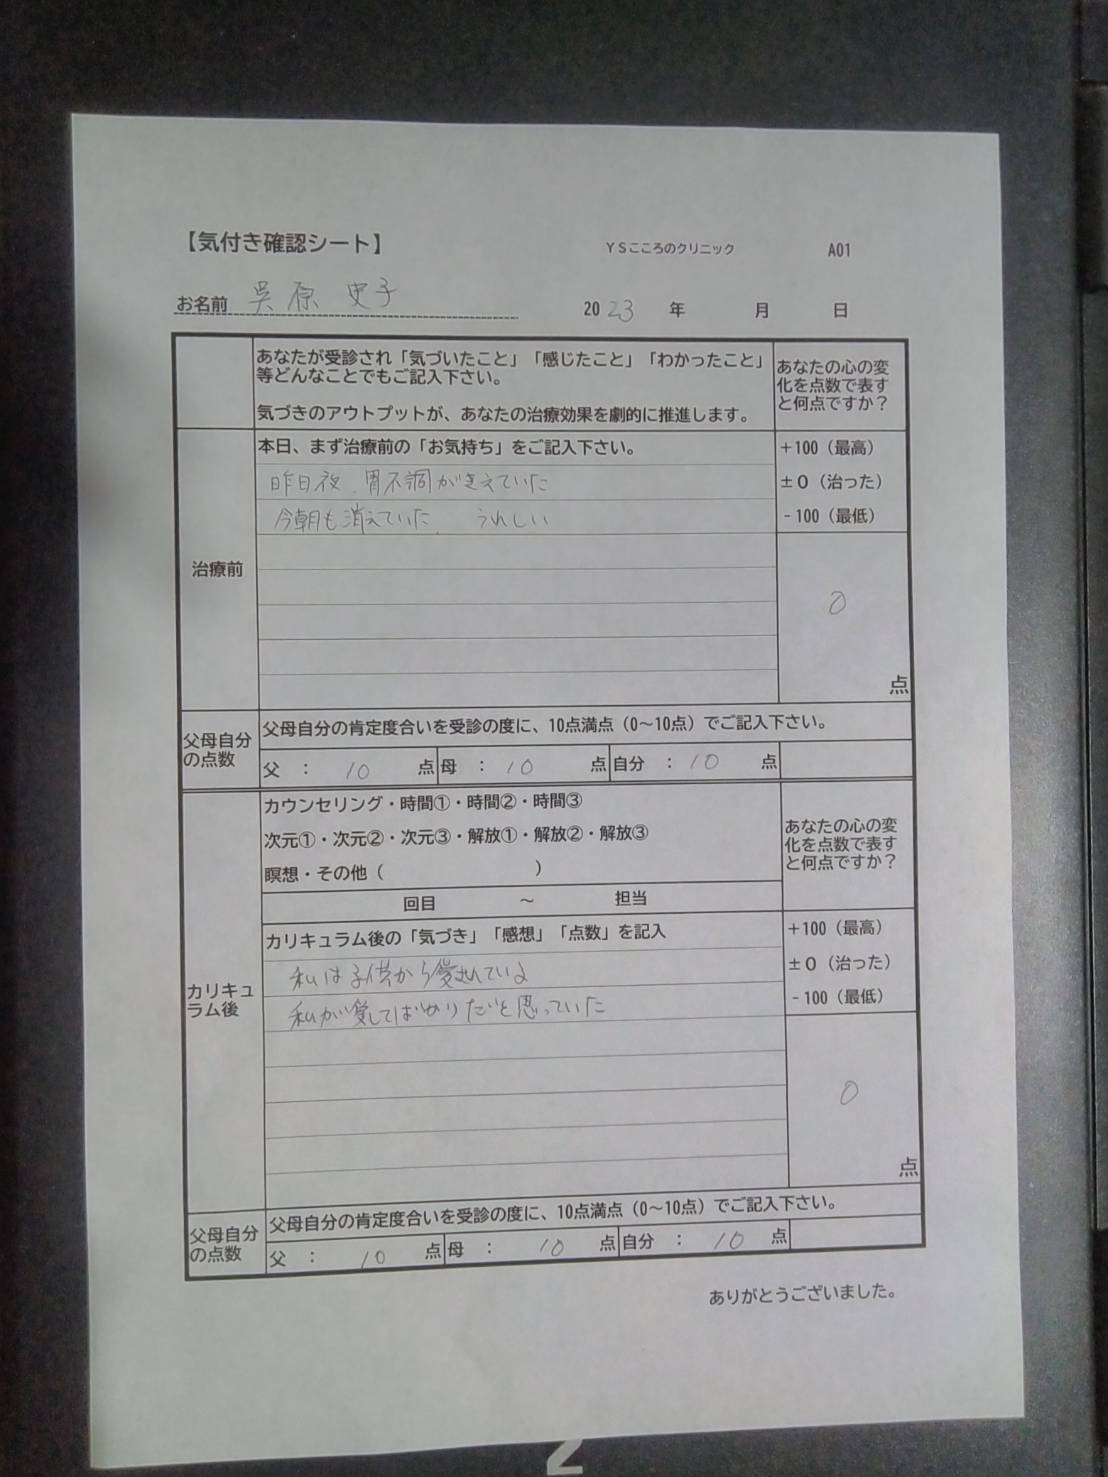 【気付き確認シート】 YSこころのクリニック A01
お名前 呉原 史子 2023 年 月 日
あなたが受診され「気づいたこと」「感じたこと」「わかったこと」
等どんなことでもご記入下さい。
気づきのアウトプットが、あなたの治療効果を劇的に推進します。
あなたの心の変
化を点数で表す
と何点ですか?
治療前
本日、まず治療前の「お気持ち」をご記入下さい。
昨日夜、胃不調がきえていた
今朝も消えていた うれしい
+100(最高)
±0(治った)
-100(最低)
0
点
父母自分
の点数
父母自分の肯定度合いを受診の度に、10点満点(0~10点)でご記入下さい。
父 : 10 点 母 : 10 点 自分 : 10 点
カリキュ
ラム後
カウンセリング・時間①・時間②・時間③
次元①・次元②・次元③・解放①・解放②・解放③
瞑想・その他( )
回目 ~ 担当
あなたの心の変
化を点数で表す
と何点ですか?
カリキュラム後の「気づき」「感想」「点数」を記入
私は子供から愛されている
私が愛してばかりだと思っていた
+100(最高)
±0(治った)
-100(最低)
0
点
父母自分
の点数
父母自分の肯定度合いを受診の度に、10点満点(0~10点)でご記入下さい。
父 : 10 点 母 : 10 点 自分 : 10 点
ありがとうございました。
2